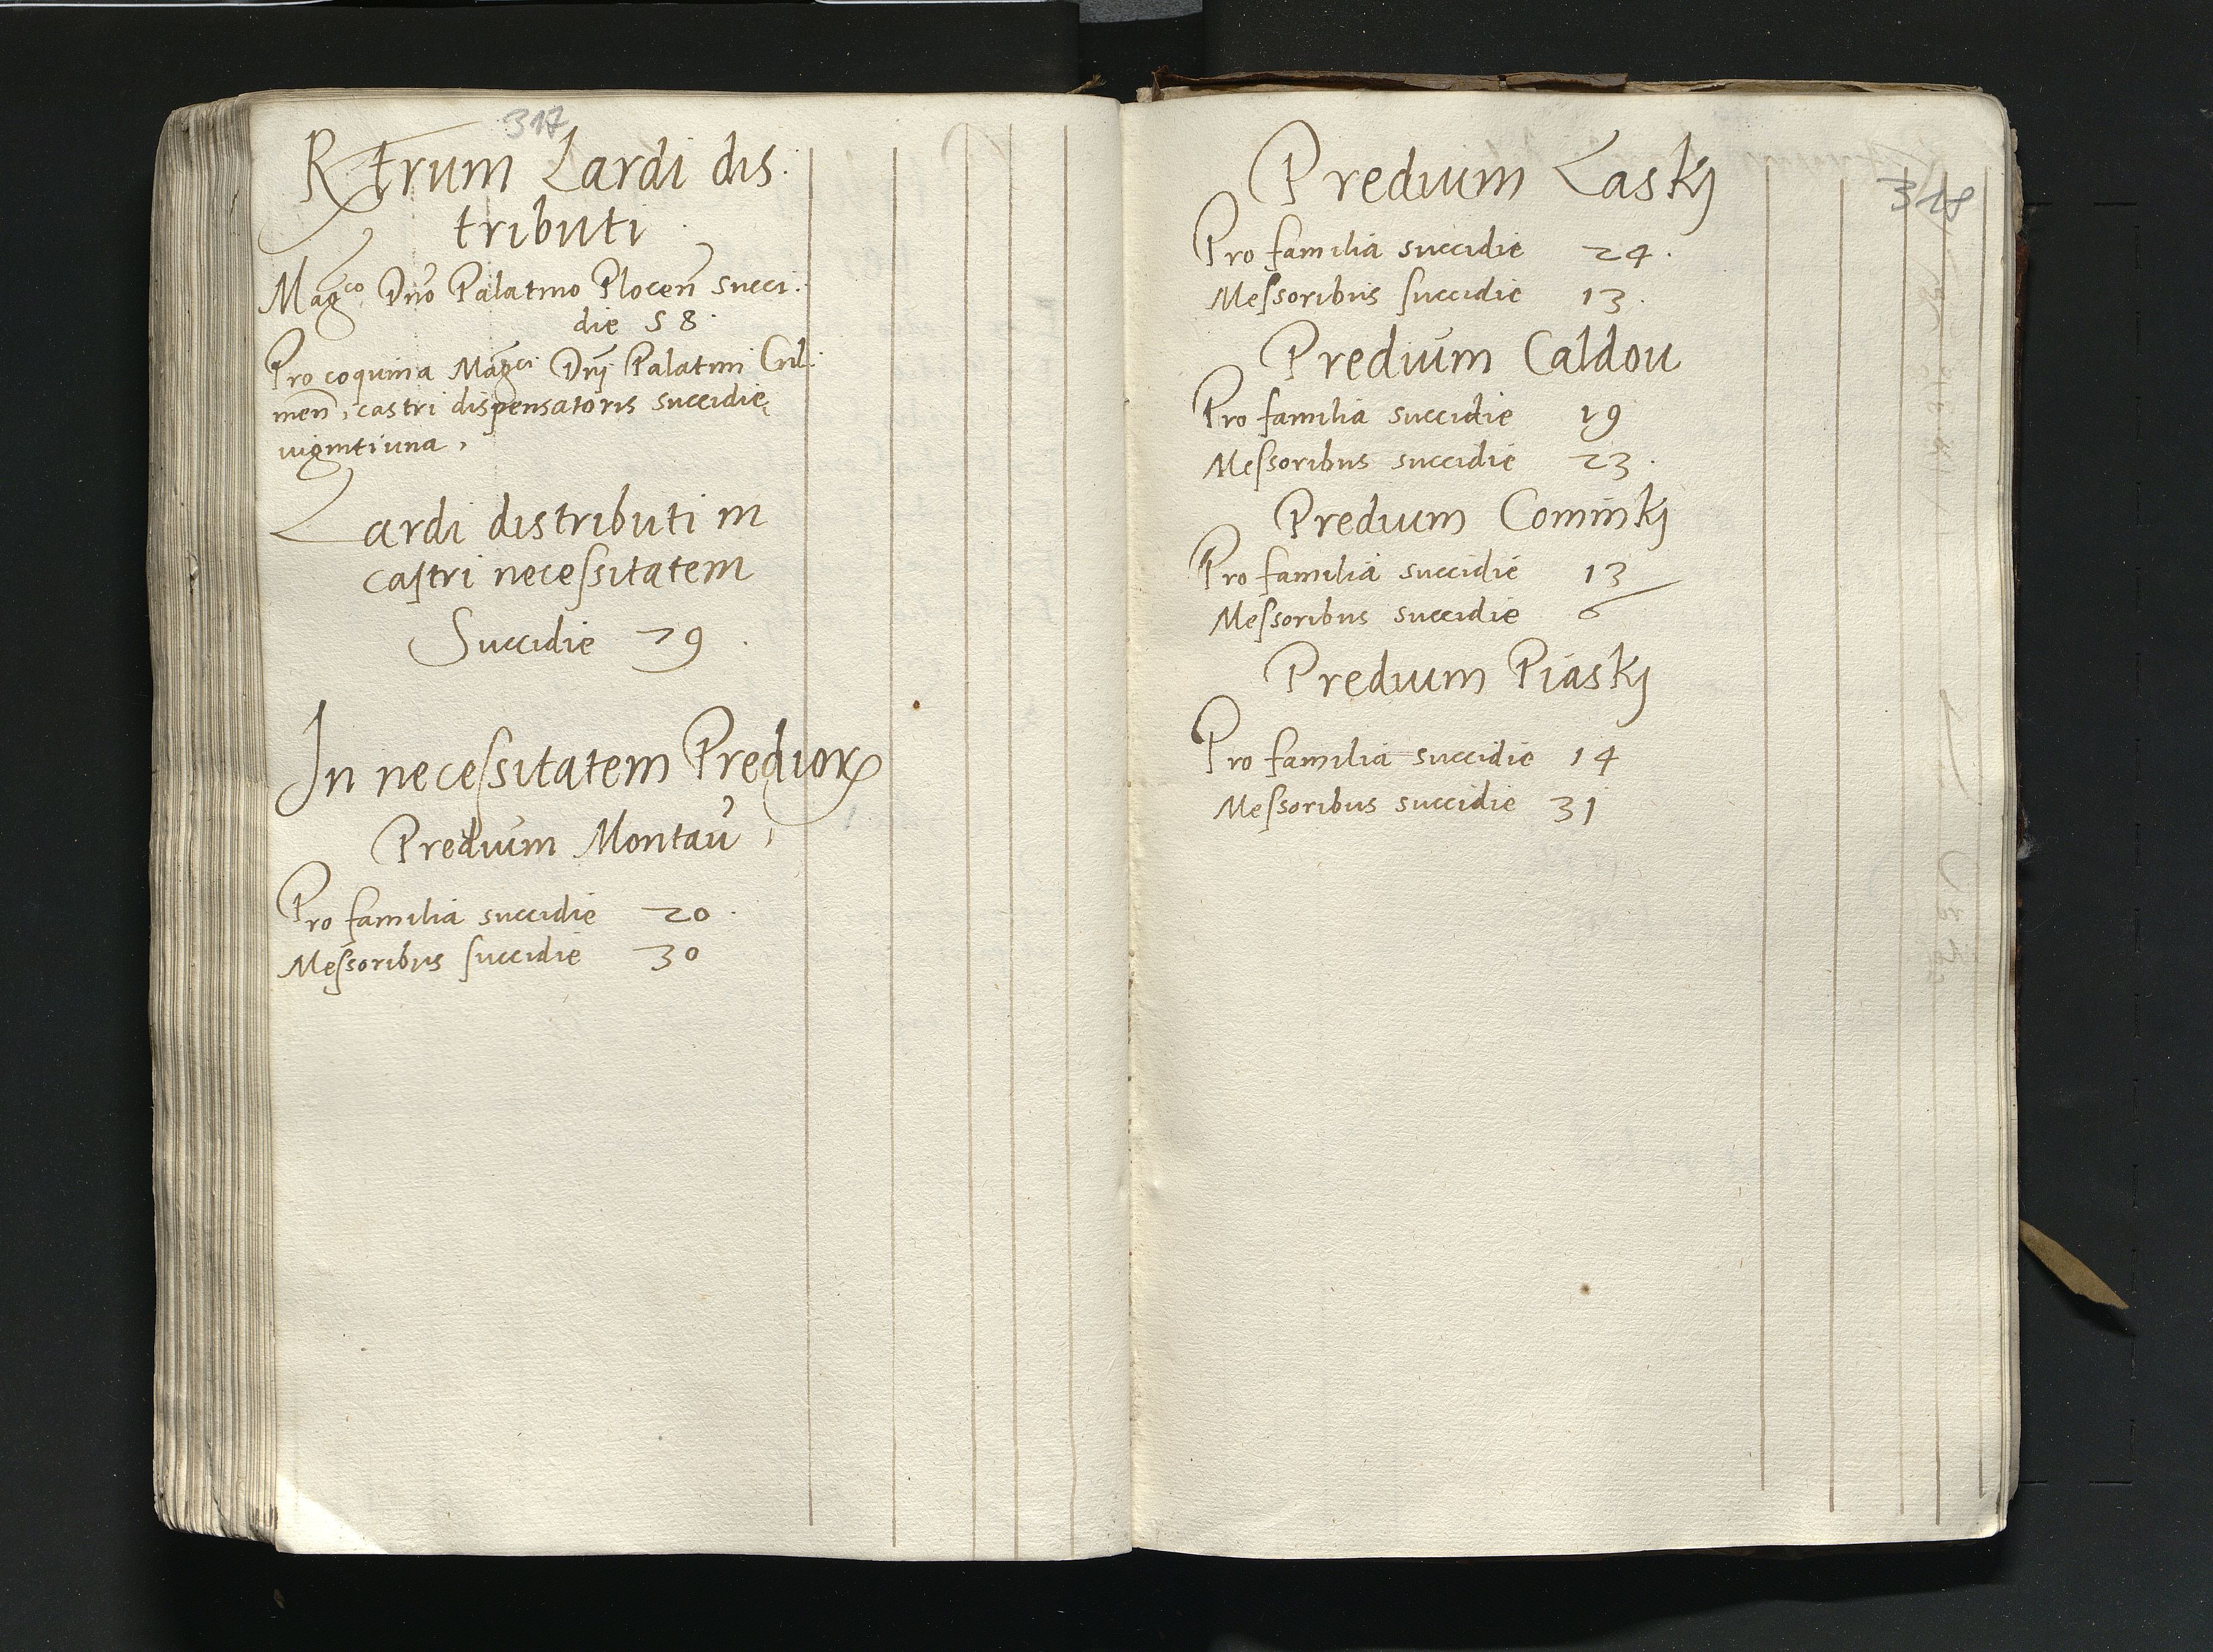 317
Rtrum Lardi dis.
tributi
Magco Dno Palatino Plocen succi.
die 58.
Pro coquina Magci Dnj Palatini Cul.
men, castri dispensatoris succidie
viginti una,
Lardi distributi in
castri neceſsitatem
Succidie 29.
In neceſsitatem Predior
Predium Montau,
Pro familia succidie 20.
Meſsoribus ſuccidie 30
Predium Laskj
Pro familia succidie 24.
Meſsoribus ſuccidie 13.
Predium Caldou
Pro familia succidie 19
Meſsoribus succidie 23.
Predium Cominkj
Pro familia succidie 13
Meſsoribus succidie 6
Predium Piaskj
Pro familia succidie 14
Meſsoribus succidie 31